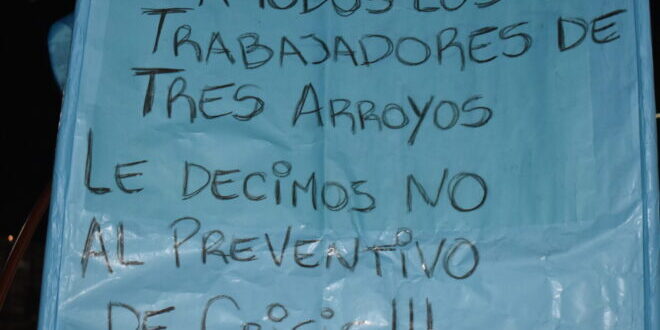 A TODOS LOS
TRABAJADORES DE
TRES ARROYOS
LE DECIMOS NO
AL PREVENTIVO
DE CRISIS!!!